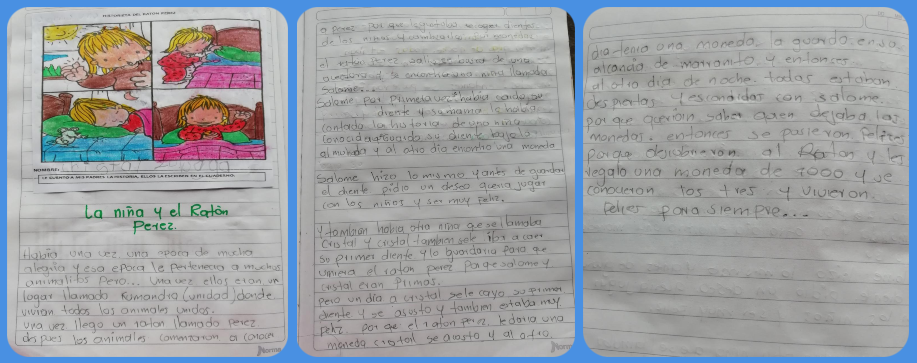 HISTORIETA DEL RATÓN PÉREZ
NOMBRE:
LE CUENTO A MIS PADRES LA HISTORIA, ELLOS LA ESCRIBEN EN EL CUADERNO.
La niña y el Ratón
Perez.
Había una vez una epoca de mucha
alegria y esa epoca le pertenecia a muchos
animalitos Pero... Una vez ellos eran un
logar llamado Rumandia (unidad) donde
vivian todos los animales unidos.
una vez llego un raton llamado perez
despues los animales comenzaron a conocer
Norma
a perez por que
de los niños y cambiarlos monedas
el ratón perez salio en busca de una
aventura y se encontro una niña llamada
Salome...
Salome por primera vez habia caido su
diente y su mama le habia
contado la historia de una niña
conocida guardo su diente bajo la
almohada y al otro dia encontro una moneda
Salome hizo lo mismo y antes de guardar
el diente pidio un deseo queria jugar
con los niños y ser muy feliz.
Y tambien habia otra niña que se llamaba
Cristal y cristal tambien se le iba a caer
su primer diente y lo guardaria para que
viniera el raton perez porque salome y
cristal eran Primas.
Pero un dia a cristal se le cayo su primer
diente y se asusto y tambien estaba muy
feliz por que el raton perez le daria una
moneda cristal se acosto y al otro
Norma
dia tenia una moneda la guardo en su
alcancia de marranito y entonces
al otro dia de noche todas estaban
despiertas y escondidas con salome
porque querian saber quien dejaba las
monedas. entonces se pusieron felices
porque descubrieron al Raton y les
regalo una moneda de 1000 y se
conocieron los tres y vivieron
felices para siempre...